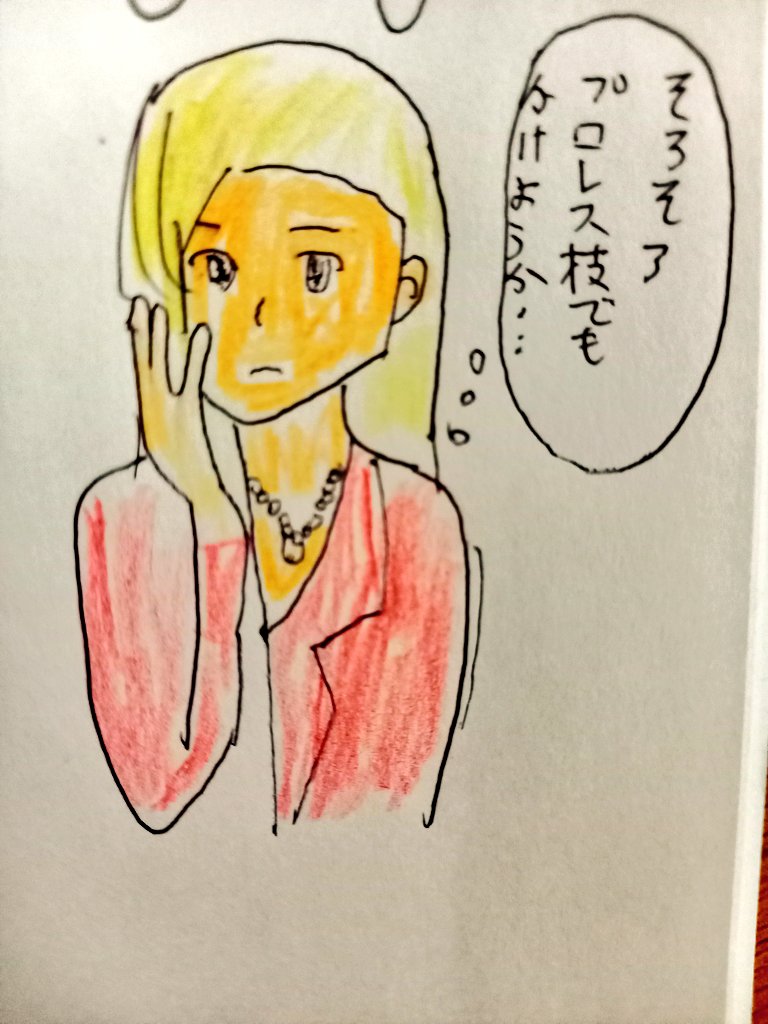 そろそろ
プロレス枝でも
かけようか…